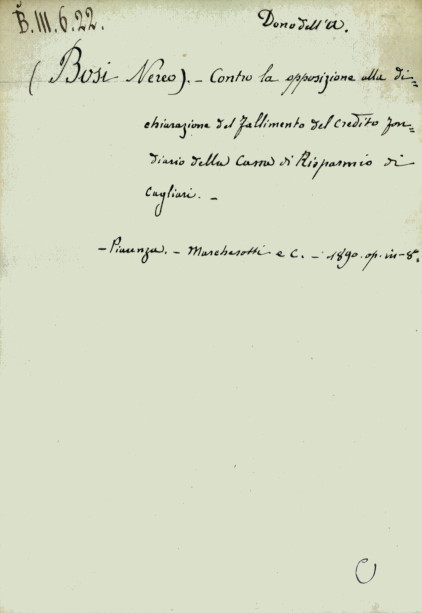 B.III.6.22.
Dono dell'A.
(Bosi Nereo). - Contro la opposizione alla di=
chiarazione del fallimento del credito fon=
diario della Cassa di Risparmio di
Cagliari. -
- Piacenza. - Marchesotti e C. - 1890. op. in-8°.